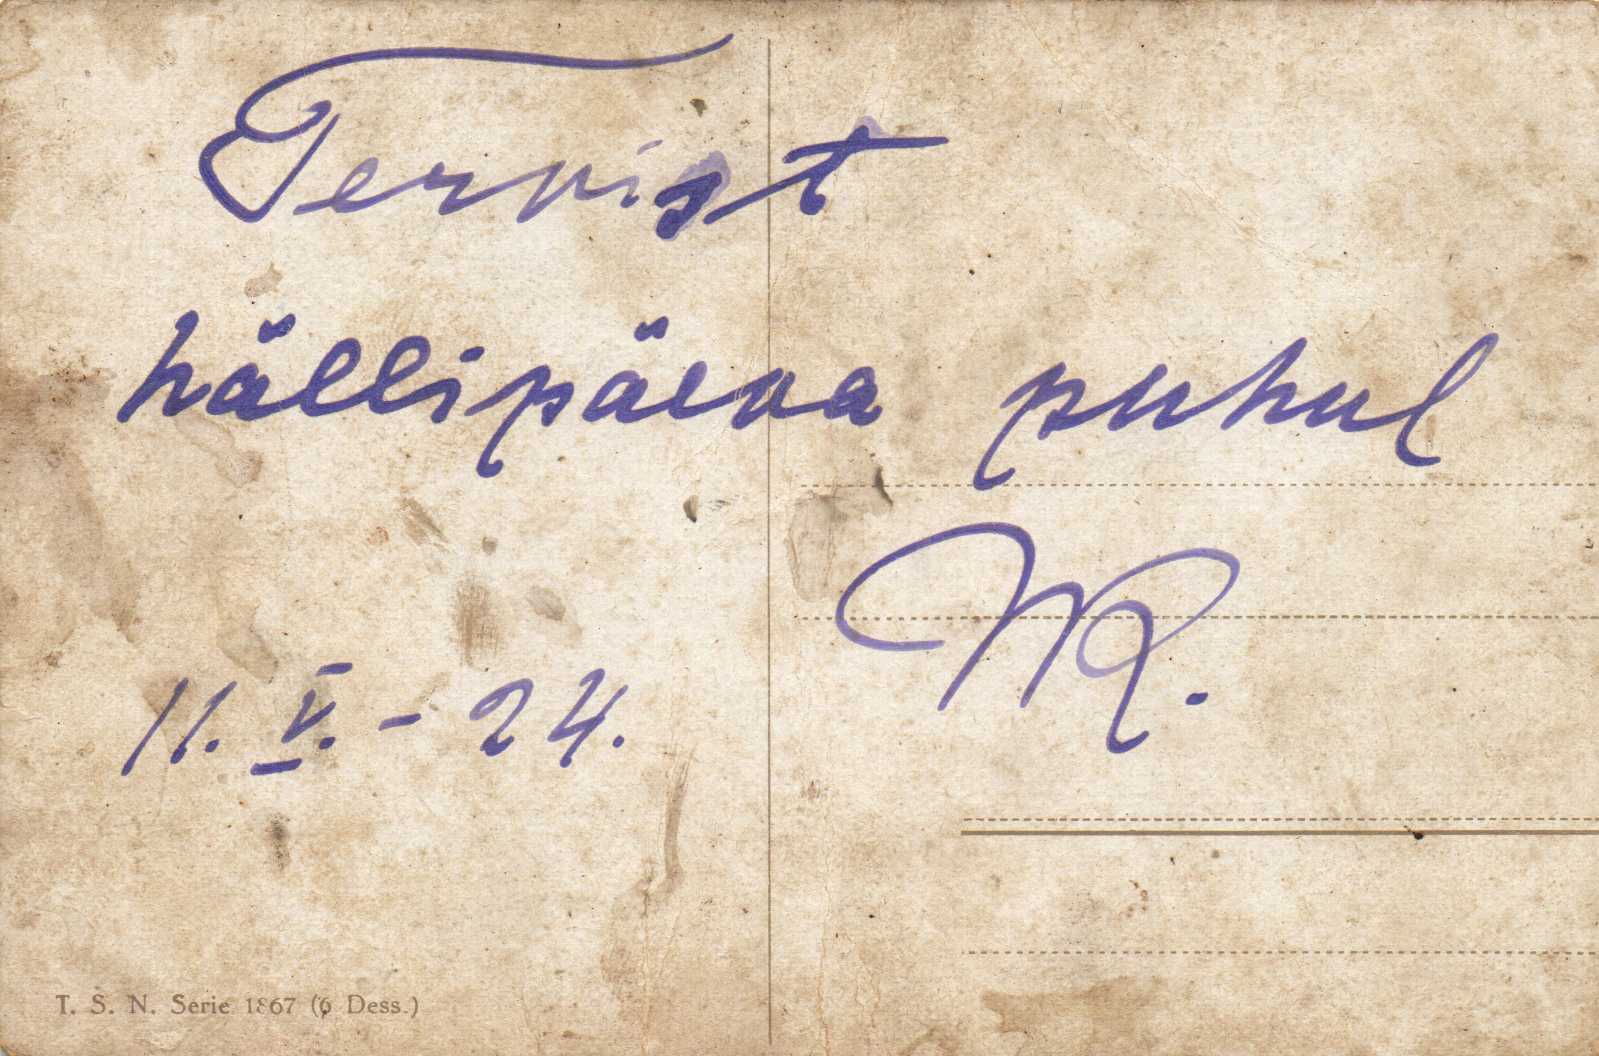 Tervist
hällipäeva puhul
MR.
11. V. - 24.
T. S. N. Serie 1867 (6 Dess.)